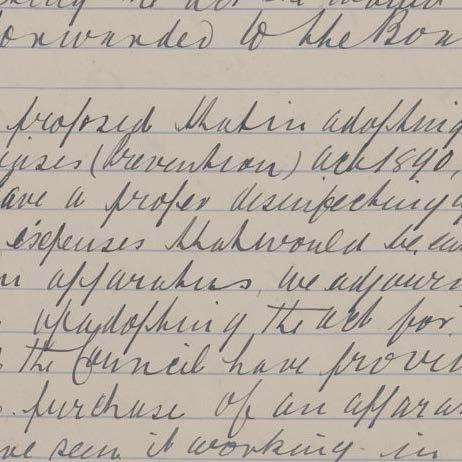 forwarded to the Boa
proposed that in adopting
eases (Prevention) act 1890,
ave a proper disinfecting
expenses that would be
n apparatus, we adjourn
of adopting the act for
the Council have provi
purchase of an appara
ve seen it working in